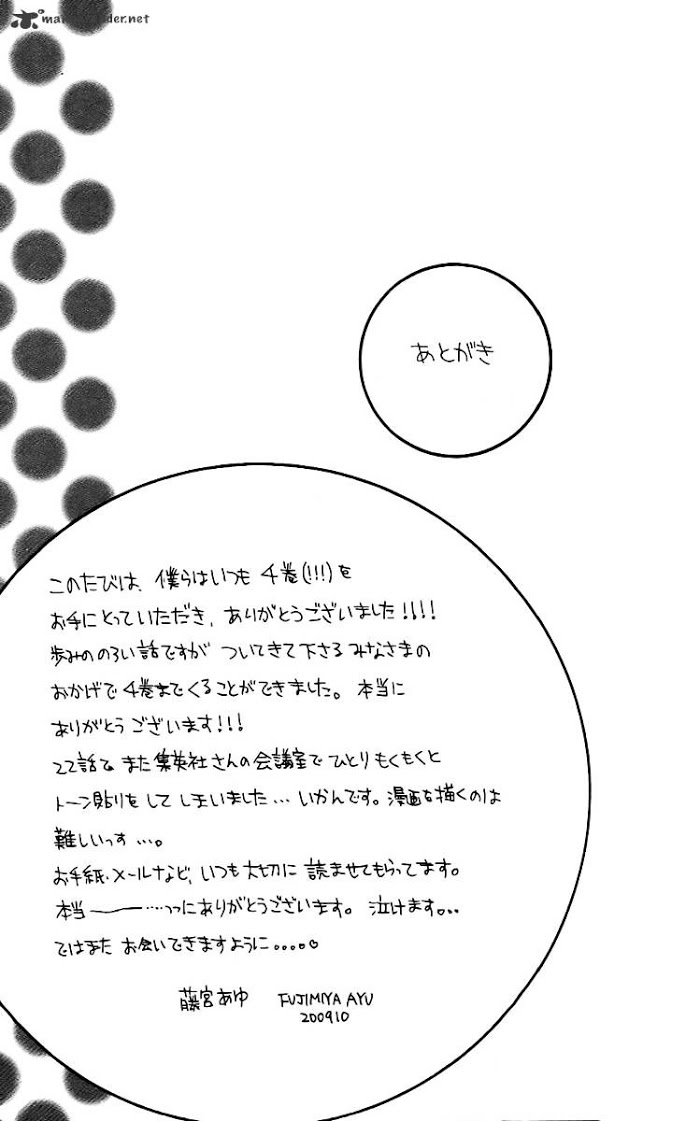 あとがき
このたびは、僕らはいつも 4巻(!!!)を
お手にとっていただき、ありがとうございました!!!!
歩みののろい話ですが ついてきて下さる みなさまの
おかげで 4巻まで くることができました。 本当に
ありがとう ございます!!!
22話で また 集英社さんの会議室で ひとり もくもくと
トーン貼りを して しまいました… いかんです。漫画を描くのは
難しいっす …。
お手紙・メールなど、いつも大切に 読ませてもらってます。
本当――……っにありがとうございます。 泣けます。。。
ではまた お会いできますように。。。。♡
藤宮あゆ FUJIMIYA AYU
200910